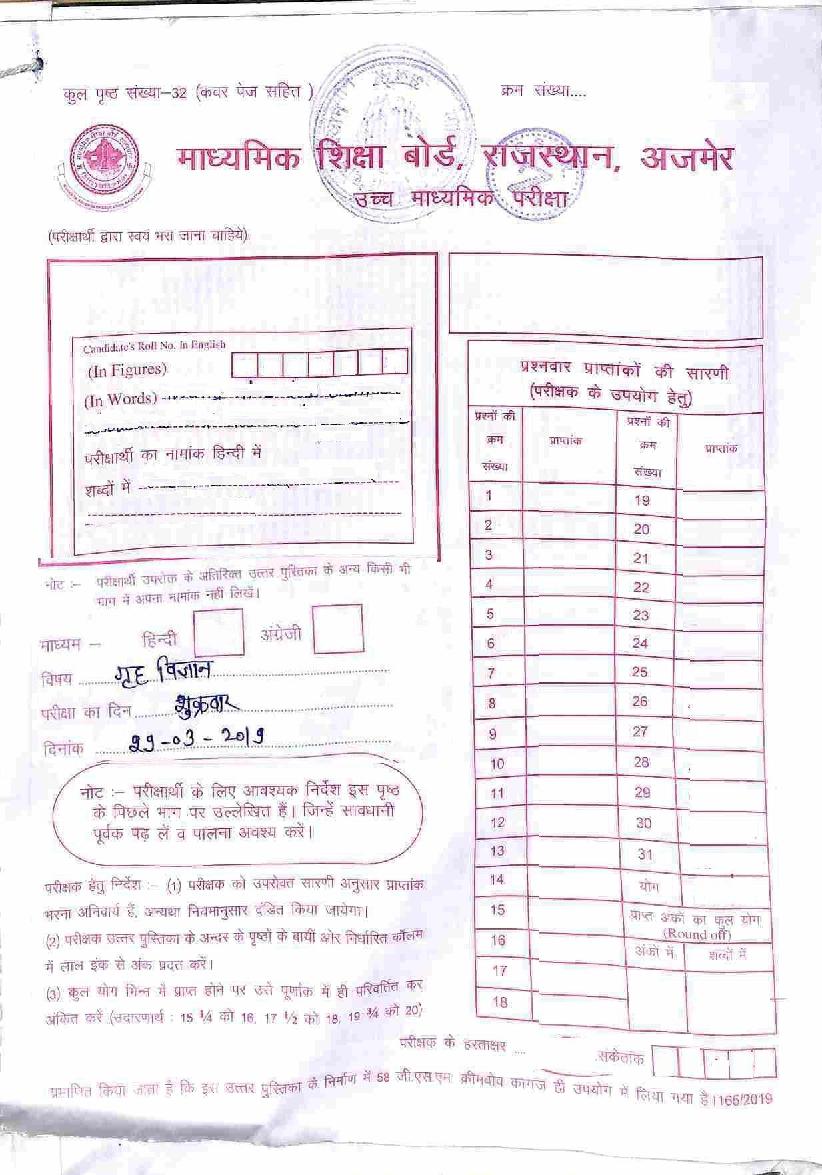 कुल पृष्ठ संख्या–32 (कवर पेज सहित )
क्रम संख्या....
माध्यमिक शिक्षा बोर्ड, राजस्थान, अजमेर
उच्च माध्यमिक परीक्षा
(परीक्षार्थी द्वारा स्वयं भरा जाना चाहिये)
Candidate's Roll No. In English
(In Figures)
(In Words)
परीक्षार्थी का नामांक हिन्दी में
शब्दों में
नोट :– परीक्षार्थी उपरोक्त के अतिरिक्त उत्तर पुस्तिका के अन्य किसी भी
भाग में अपना नामांक नहीं लिखें।
माध्यम – हिन्दी अंग्रेजी
विषय गृह विज्ञान
परीक्षा का दिन शुक्रवार
दिनांक 29-03-2019
नोट :– परीक्षार्थी के लिए आवश्यक निर्देश इस पृष्ठ
के पिछले भाग पर उल्लेखित हैं। जिन्हें सावधानी
पूर्वक पढ़ लें व पालना अवश्य करें।
परीक्षक हेतु निर्देश :– (1) परीक्षक को उपरोक्त सारणी अनुसार प्राप्तांक
भरना अनिवार्य हैं, अन्यथा नियमानुसार दंडित किया जायेगा।
(2) परीक्षक उत्तर पुस्तिका के अन्दर के पृष्ठों के बायीं ओर निर्धारित कॉलम
में लाल इंक से अंक प्रदत्त करें।
(3) कुल योग भिन्न में प्राप्त होने पर उसे पूर्णांक में ही परिवर्तित कर
अंकित करें (उदाहरणार्थ : 15 ¼ को 16, 17 ½ को 18, 19 ¾ को 20)
प्रश्नवार प्राप्तांकों की सारणी
(परीक्षक के उपयोग हेतु)
प्रश्नों की क्रम संख्या प्राप्तांक प्रश्नों की क्रम संख्या प्राप्तांक
1 19
2 20
3 21
4 22
5 23
6 24
7 25
8 26
9 27
10 28
11 29
12 30
13 31
14 योग
15 प्राप्त अंकों का कुल योग
(Round off)
16 अंकों में शब्दों में
17
18
परीक्षक के हस्ताक्षर .... संकेतांक
प्रमाणित किया जाता है कि इस उत्तर पुस्तिका के निर्माण में 58 जी.एस.एम. क्रीमवोव कागज ही उपयोग में लिया गया है।165/2019